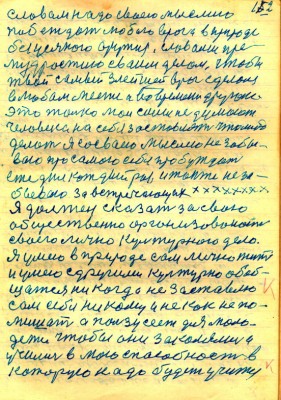 152
словам надо своею мыслию
побеждат любого врага в природе
без всякого оружия. словами пре
мудростию своими делом, чтобы
твой самый злейший враг сделан
в любом месте и во времени другом.
Это только мои силы не думает
человека на себя заставит только
делат я со своею мыслию не забы
ваю про самого себя пробуждат
сегодня каждый раз и тоже не за
бываю за встречающих ххххххххх
Я должен сказат за свою
общественно организованност
своего лично культурного дело.
Я умею в природе сам лично жит
и умею с другими культурно обоб-
щатся никогда не заставлю
сам себя никому а не как не по-
мишат а ползу сеет для моло-
дежи чтобы они закалялис а
учились в мою способност в
которую надо будет учит